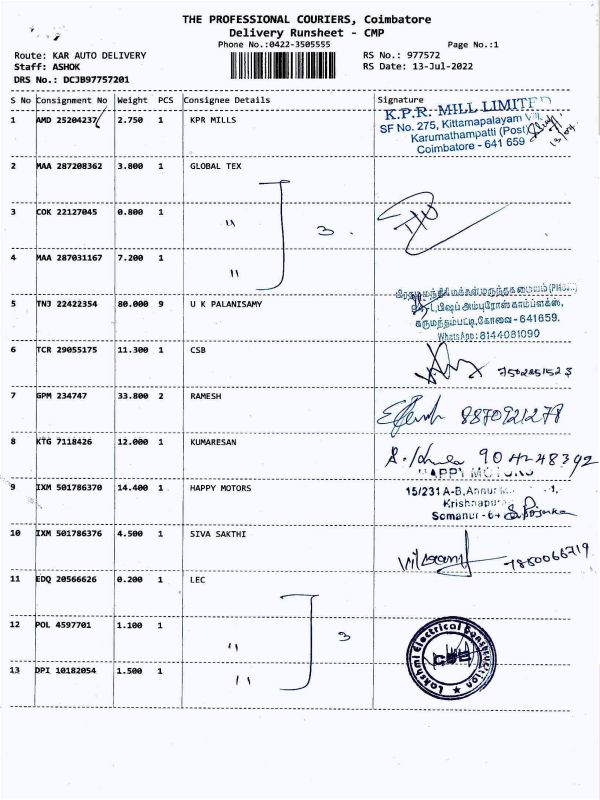 THE PROFESSIONAL COURIERS, Coimbatore
Delivery Runsheet - CMP
Phone No.:0422-3505555 Page No.:1
Route: KAR AUTO DELIVERY RS No.: 977572
Staff: ASHOK RS Date: 13-Jul-2022
DRS No.: DCJB97757201
S No Consignment No Weight PCS Consignee Details Signature
1 AMD 25204237 2.750 1 KPR MILLS
K.P.R. MILL LIMITED
SF No. 275, Kittampalayam
Karumathampatti (Post)
Coimbatore - 641 659
2 MAA 287208362 3.800 1 GLOBAL TEX
3 COK 22127045 0.800 1 " 3
4 MAA 287031167 7.200 1 "
5 TNJ 22422354 80.000 9 U K PALANISAMY
கருமத்தம்பட்டி,கோவை - 641659.
WhatsApp : 8144081090
6 TCR 29055175 11.300 1 CSB
7502851523
7 GPM 234747 33.800 2 RAMESH 8870921278
8 KTG 7118426 12.000 1 KUMARESAN
HAPPY MOTORS
9 IXM 501786370 14.400 1 HAPPY MOTORS 15/231 A-B, Annur
Somanur - 64
10 IXM 501786376 4.500 1 SIVA SAKTHI
11 EDQ 20566626 0.200 1 LEC
12 POL 4597701 1.100 1 " 3
13 DPI 10182054 1.500 1 "
Lakshmi Electrical Construction